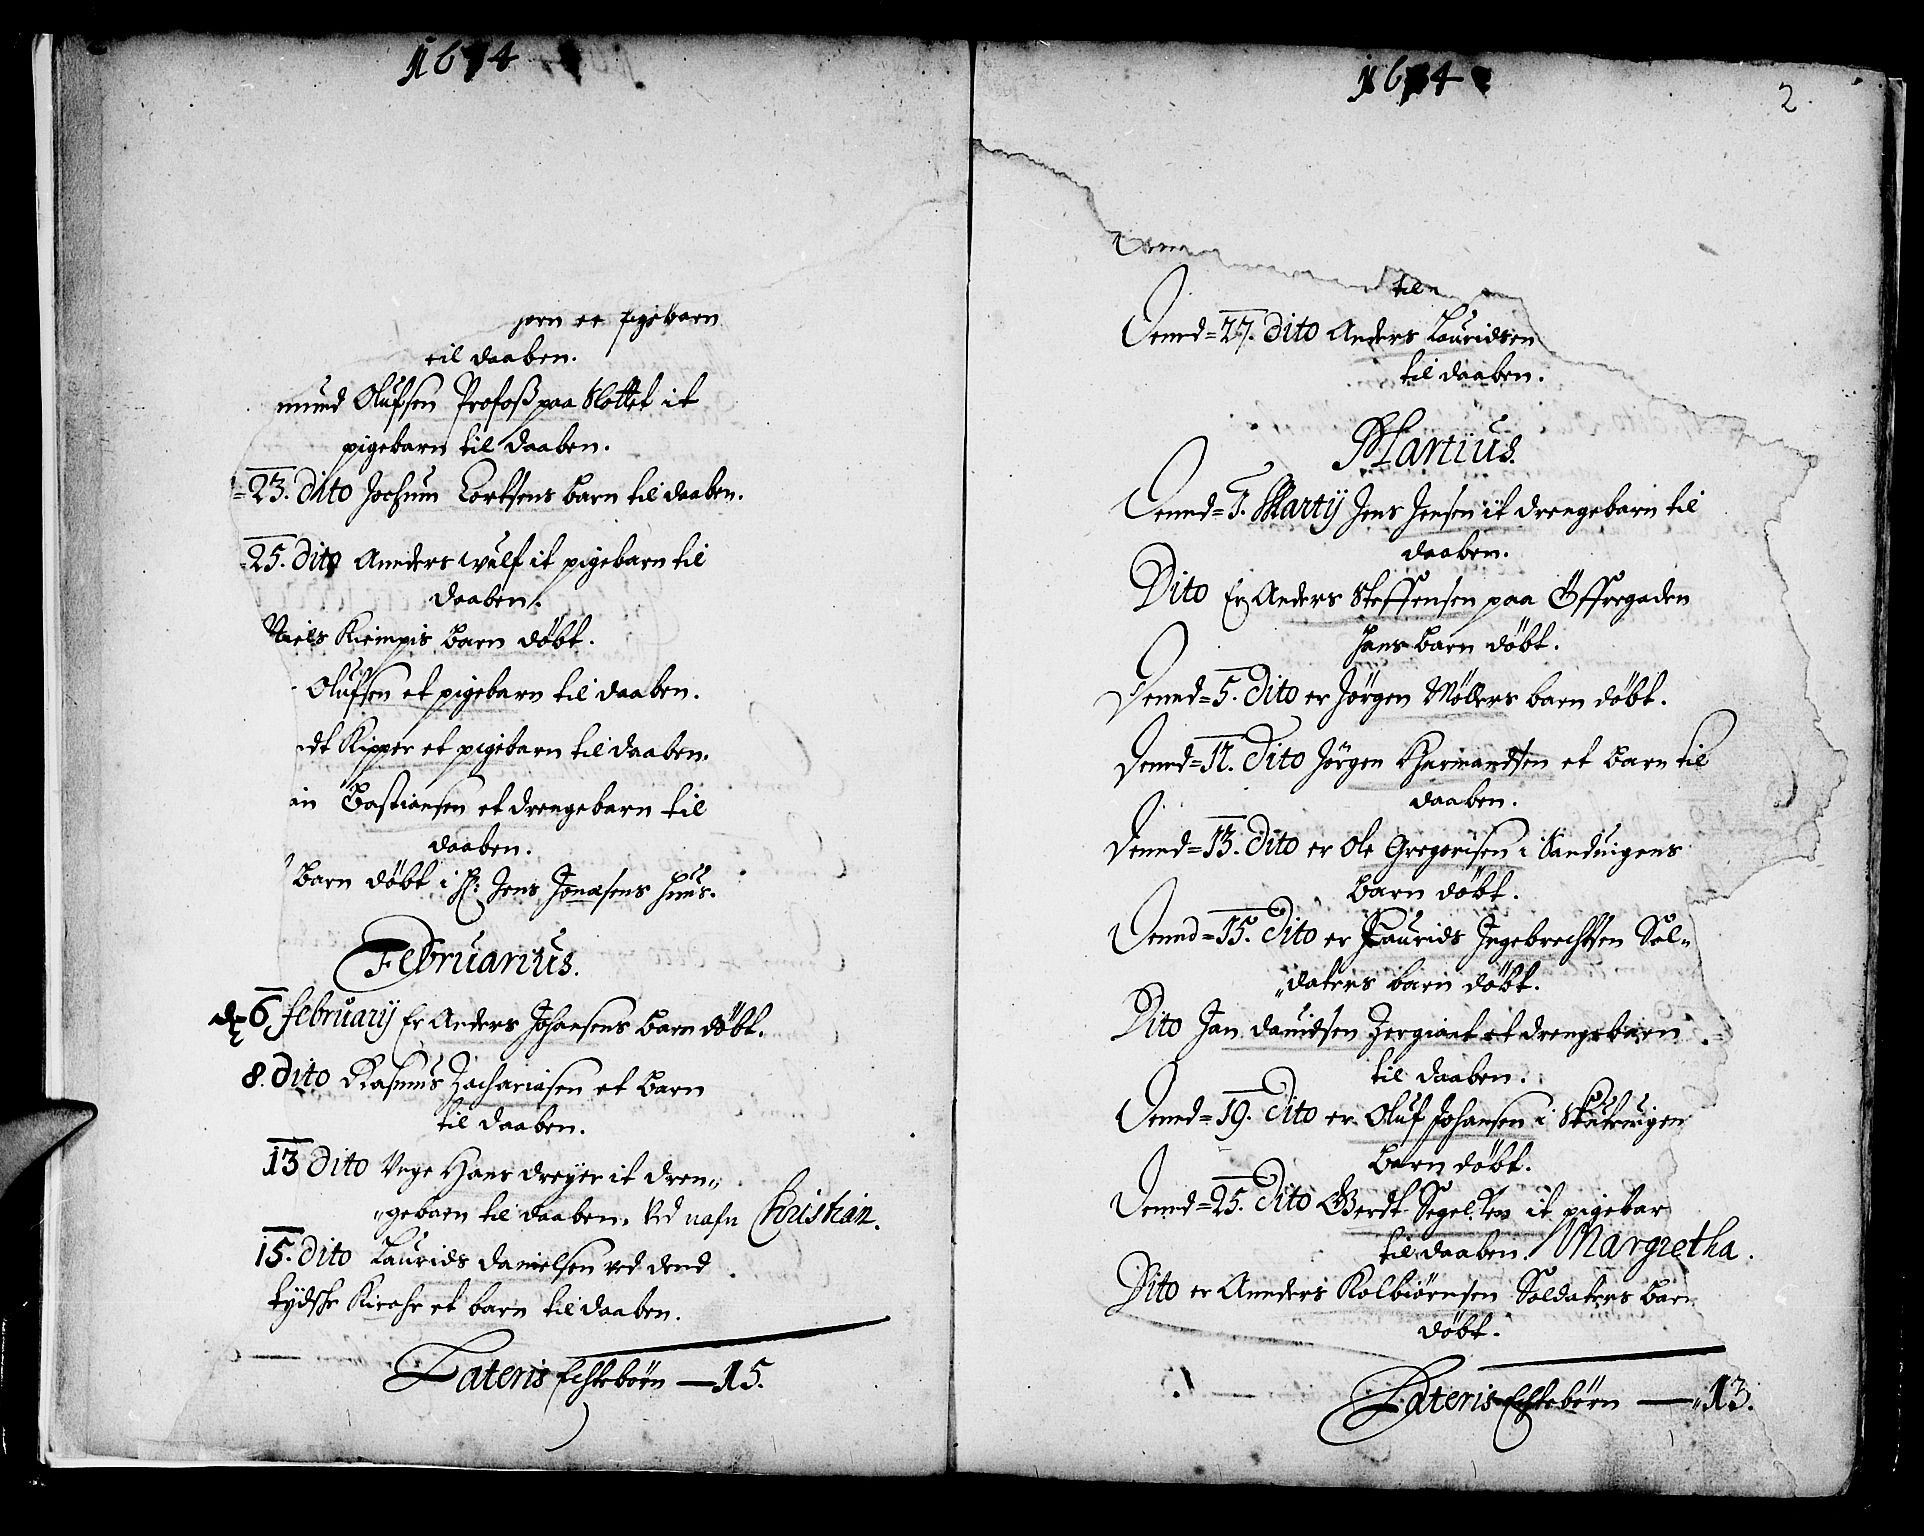 1674
biørn et pigebarn
til daaben.
mund Olufsen Profoss paa Slottet it
pigebarn til daaben.
=23. dito Jochum Cortsens barn til daaben.
=25. dito Annders Wulf it pigebarn til
daaben.
Niels Kieimpis barn døbt.
Olufsen et pigebarn til daaben.
dt Kipper et pigebarn til daaben.
in Bastiansen et drengebarn til
daaben.
barn døbt i H: Jens Jonæsens huus.
Februarius.
d. 6 februarij Er Anders Johansens barn døbt.
8. dito Rasmus Zachariasen et barn
til daaben.
13 dito Hans Dreyer it dren„
„gebarn til daaben. ved nafn Christian.
15. dito Laurids Danielsen ved dend
tydske Kirche et barn til daaben.
Lateris Echtebörn — 15.
1674
2.
til
Dennd=27. dito Anders Lauridsen
til daaben.
Martius.
Dennd=1. Martij Jens Jensen it drengebarn til
daaben.
Dito Er Anders Steffensen paa Öffregaden
hans barn döbt.
Dennd=5. dito er Jörgen Möllers barn döbt.
Dennd=12. dito Jörgen Hermandsen et barn til
daaben.
Dennd=13. dito er Ole Gregorisen i Sanduigens
barn döbt.
Dennd=15. dito er Laurids Ingebrechtsen Sol„
„daters barn döbt.
Dito Jan Dauidsen Zergiant et drengebarn
til daaben.
Dennd=19. dito er Oluf Johansen i Skuteuigen
barn döbt.
Dennd=25. dito Gerdt Segelken it pigebar
til daaben. Margretha.
Dito er Annders Kolbiörnsen Soldaters bar
döbt.
Lateris Echtebörn — „13.